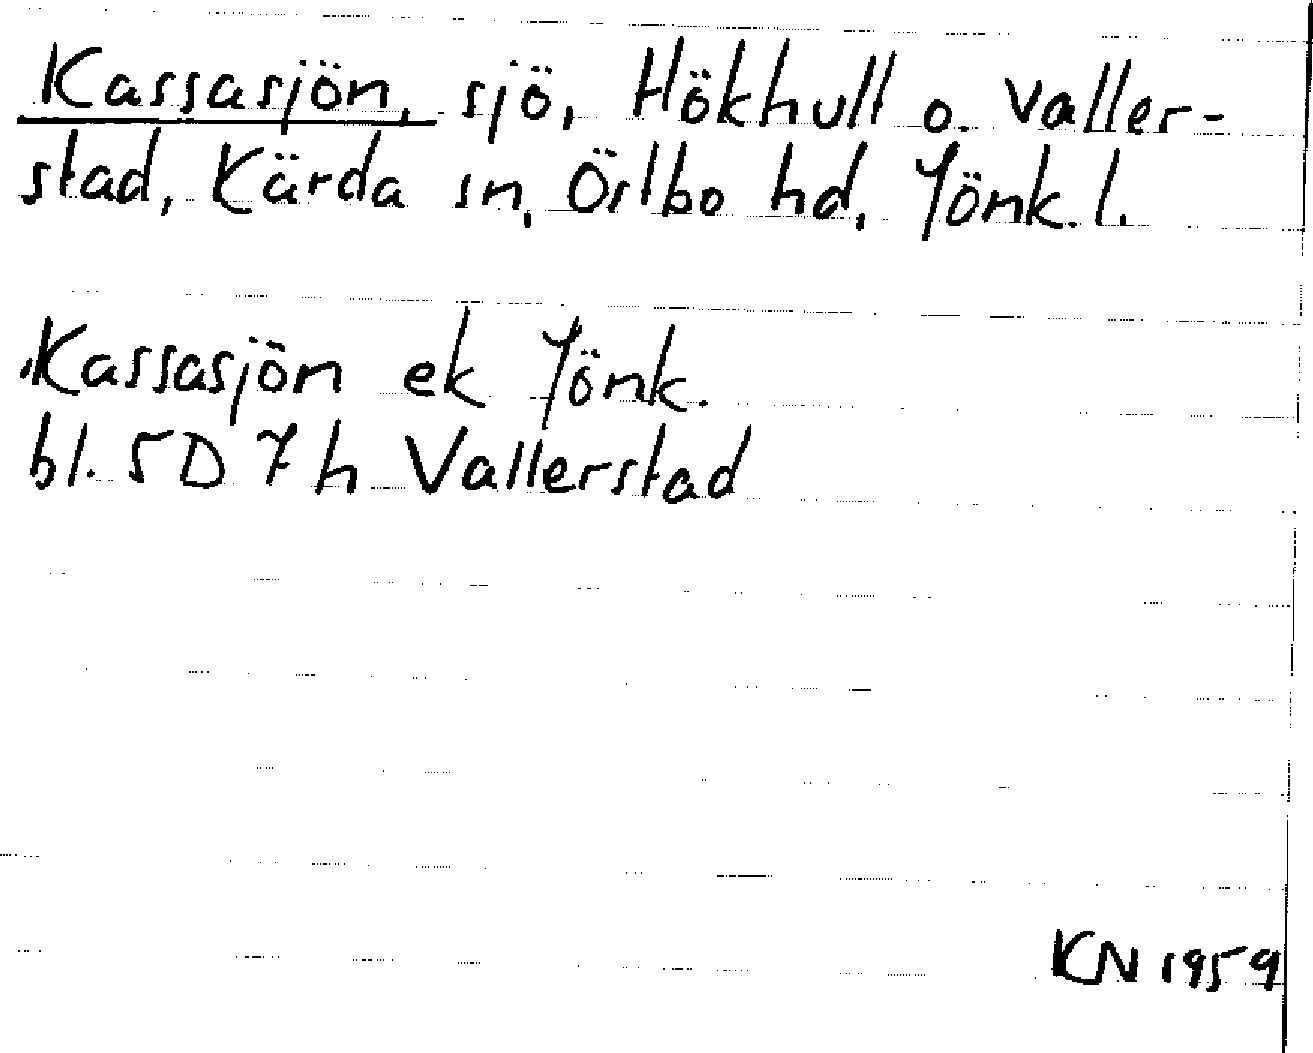 Kassasjön, sjö, Hökhult o. Valler-
stad, Kärda sn, Östbo hd, Jönk. l.
Kassasjön ek Jönk.
bl. 5D 7h Vallerstad
KN 1959